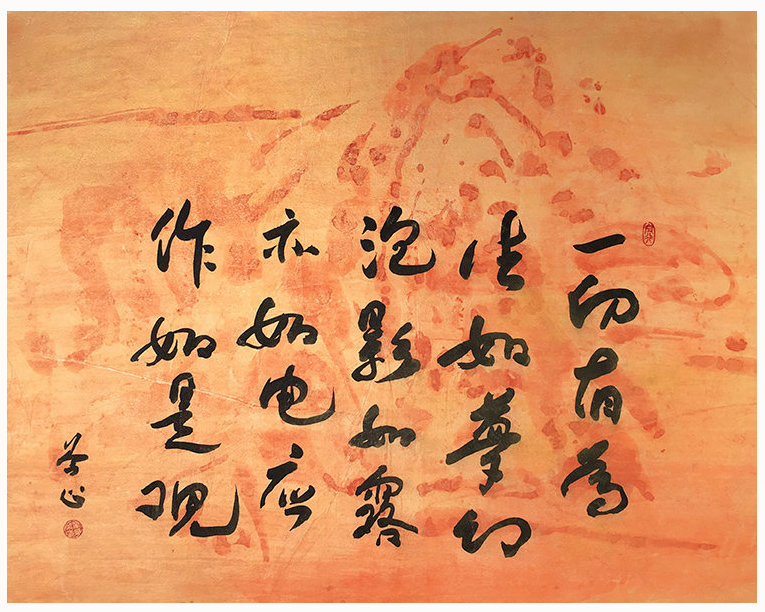 一切有為
法如夢幻
泡影如露
亦如电应
作如是观